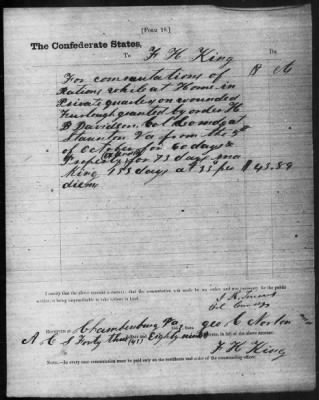 [FORM 18.]
The Confederate States,
To F H King Dr.
For commutations of $ cts
Rations while at Home in
Private quarters on wounded
Furlough granted by order H
B Davidson Col Comdg at
Staunton Va from the 5th
of October for 60 days &
Property for 73 days ma
King 133 days at 33 per $ 43.89
diem
I certify that the above account is correct; that the commutation was made by my order, and was necessary for the public
service, it being impracticable to take rations in kind.
Col Comdg
RECEIVED at Chambersburg Pa of Geo C Norton
A C S Forty three dollars and Eighty nine cents, in full of the above account.
F. H King
NOTE.—In every case commutation must be paid only on the certificate and order of the commanding officer.